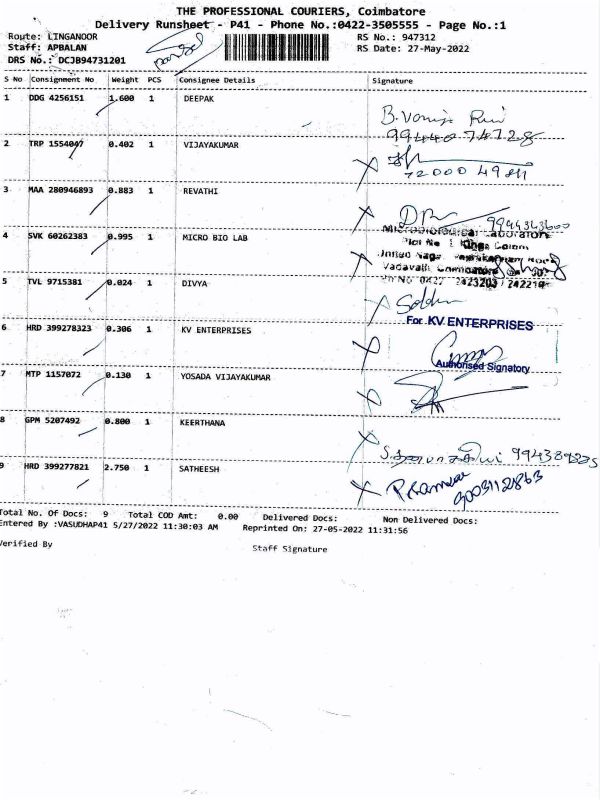 THE PROFESSIONAL COURIERS, Coimbatore
Delivery Runsheet - P41 - Phone No.:0422-3505555 - Page No.:1
Route: LINGANOOR RS No.: 947312
Staff: APBALAN RS Date: 27-May-2022
DRS No.: DCJB94731201
S No Consignment No Weight PCS Consignee Details Signature
1 DDG 4256151 1.600 1 DEEPAK
2 TRP 1554047 0.402 1 VIJAYAKUMAR
72000 49811
3 MAA 280946893 0.883 1 REVATHI
4 SVK 60262383 0.995 1 MICRO BIO LAB
Microbiological Laboratory
5 TVL 9715381 0.024 1 DIVYA
For KV ENTERPRISES
6 HRD 399278323 0.306 1 KV ENTERPRISES
Authorised Signatory
7 MTP 1157072 0.130 1 YOSADA VIJAYAKUMAR
8 GPM 5207492 0.800 1 KEERTHANA
9 HRD 399277821 2.750 1 SATHEESH
Total No. Of Docs: 9 Total COD Amt: 0.00 Delivered Docs: Non Delivered Docs:
Entered By :VASUDHAP41 5/27/2022 11:30:03 AM Reprinted On: 27-05-2022 11:31:56
Verified By Staff Signature